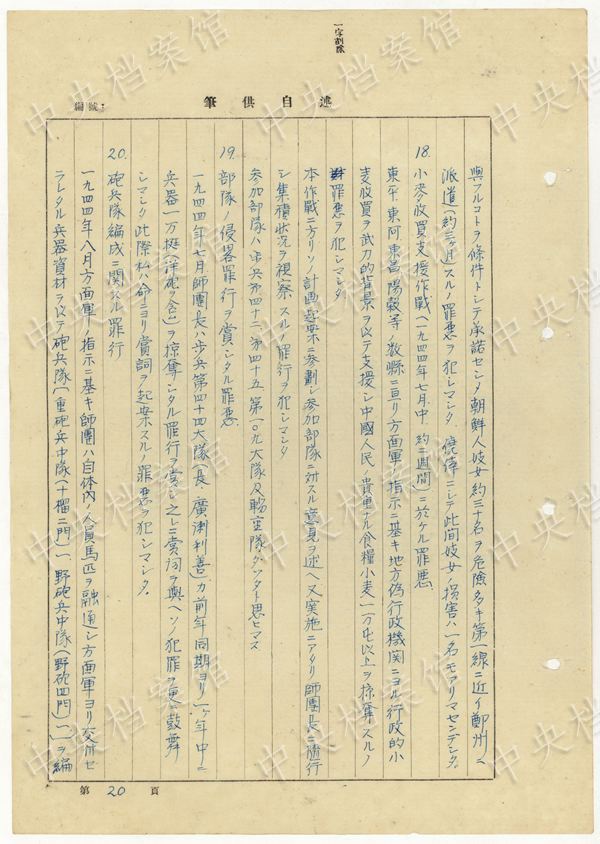 一字割除
述自供筆
編號：
與フルコトヲ條件トシテ承諾センメ朝鮮人妓女約三十名ヲ危險多キ第一線ニ近イ鄭州ニ
派遣（約三ヶ月）スルノ罪悪ヲ犯シマシタ。僥倖ニシテ此間妓女ノ損害ハ一名モアリマセンデシタ。
18. 小麥收買支援作戰（一九四四年七月中 約三週間）ニ於ケル罪悪
東平、東阿、東昌、陽穀等 数縣ニ亘リ方面軍ノ指示ニ基キ地方偽行政機関ニヨル行政的小
麦收買ヲ武力的背景ヲ以テ支援シ中國人民ノ貴重ナル食糧小麦一万屯以上ヲ掠奪スルノ
罪悪ヲ犯シマシタ
本作戰ニ方リソノ計画起案ニ参劃シ参加部隊ニ対スル意見ヲ述ヘ又実施ニアタリ師團長ニ隨行
シ集積狀況ヲ視察スルノ罪行ヲ犯シマシタ
参加部隊ハ歩兵第四十二、第四十五、第一〇九大隊及輜重隊ダツタト思ヒマス
19. 部隊ノ侵畧罪行ヲ賞シタル罪悪
一九四四年七月師團長ハ歩兵第四十四大隊（長 廣瀬利善）カ前年同期ヨリ一ヶ年中ニ
兵器一万挺（洋砲ヲ含ム）ヲ掠奪シタル罪行ヲ賞シ之レニ賞詞ヲ與ヘソノ犯罪ヲ更ニ鼓舞
シマシタ 此際私ハ命ニヨリ賞詞ヲ起案スルノ罪悪ヲ犯シマシタ。
20. 砲兵隊編成ニ関スル罪行
一九四四年八月方面軍ノ指示ニ基キ師團ハ自体内ノ人員馬匹ヲ融通シ方面軍ヨリ交付セ
ラレタル兵器資材ヲ以テ砲兵隊（重砲兵中隊（十榴二門）一、野砲兵中隊（野砲四門）一）ヲ編
第 20 頁
中央档案馆